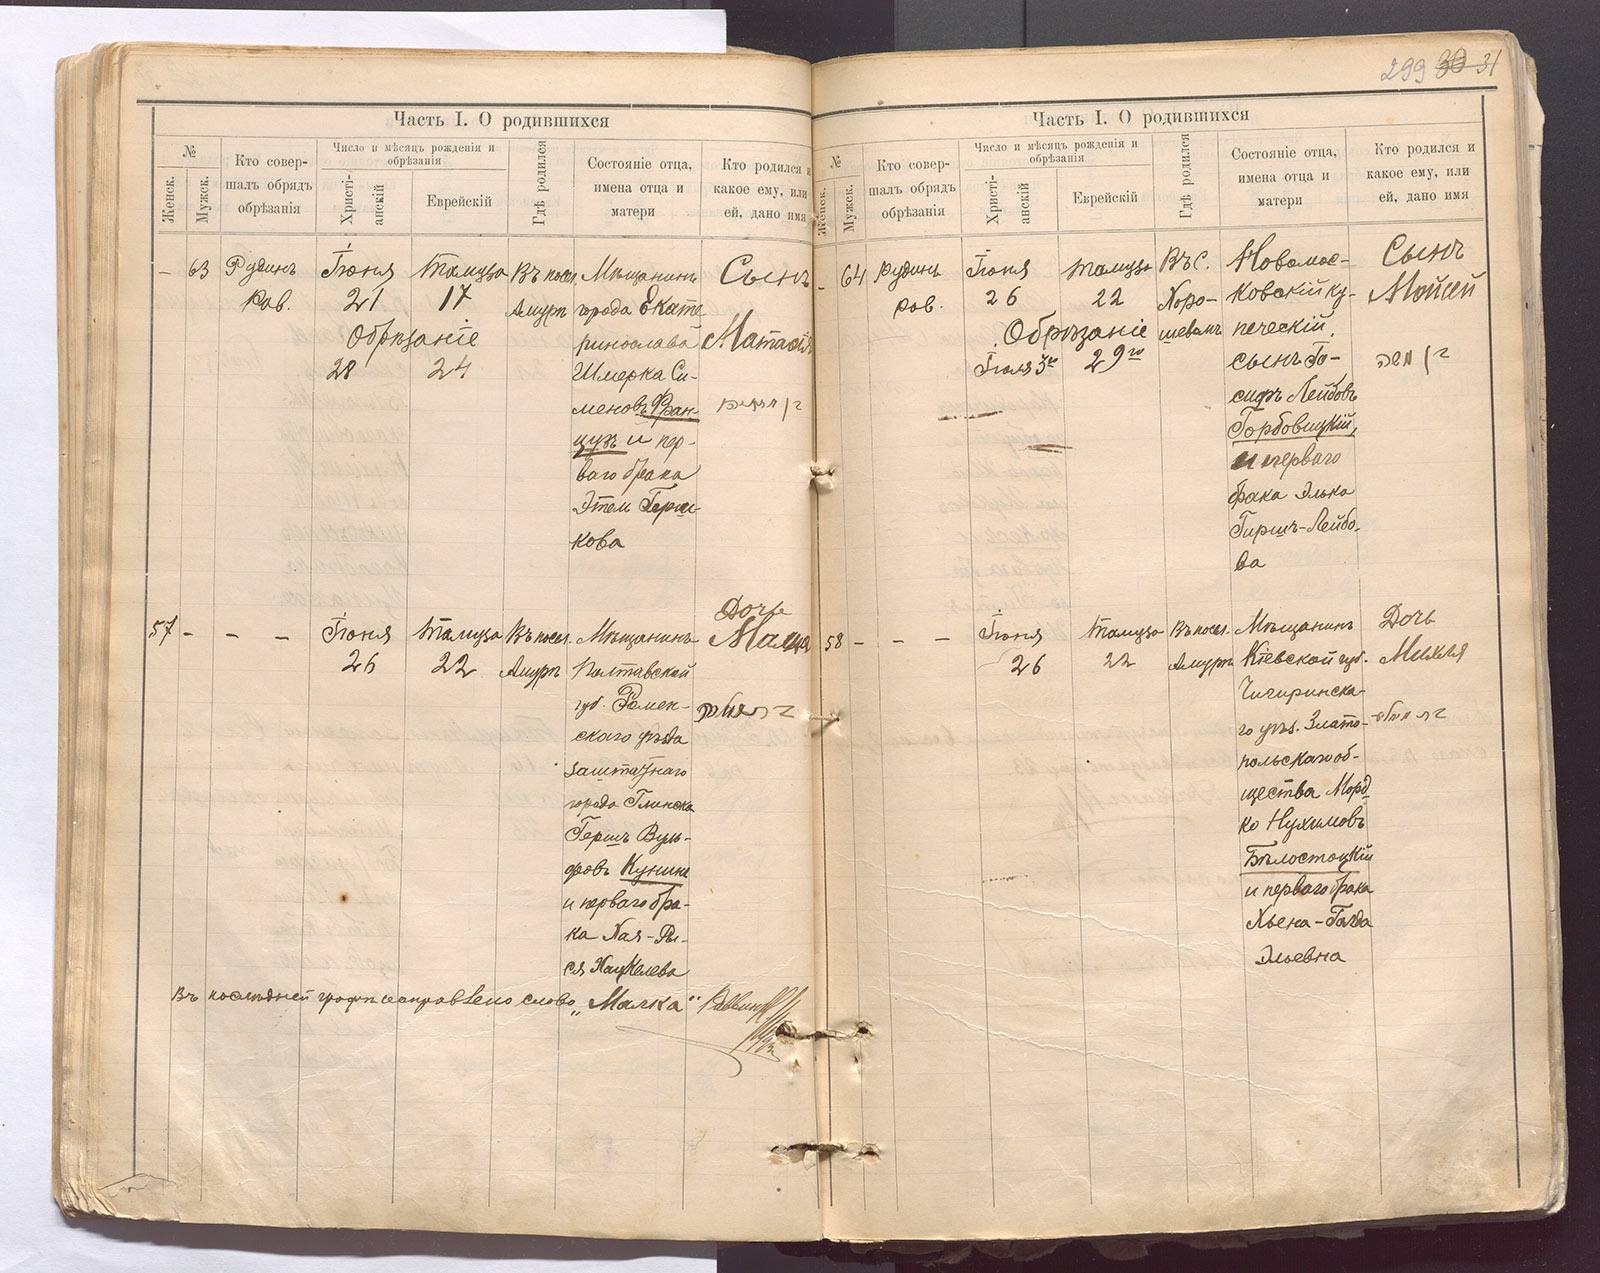 299 30 31
Часть I. О родившихся
№
Женск.
Мужск.
Кто совер-
шалъ обрядъ
обрѣзанія
Число и мѣсяцъ рожденія и
обрѣзанія
Христі-
анскій
Еврейскій
Гдѣ родился
Состояніе отца,
имена отца и
матери
Кто родился и
какое ему, или
ей, дано имя
–
63
Рудинъ
Рав.
Іюня
21
Обрѣзаніе
28
Тамуза
17
24
Въ посел.
Амурѣ
Мѣщанинъ
города Екате
ринослава
Шмерка Си-
меновъ Фран-
цузъ и пер-
ваго брака
Этем Герш-
кова
Сынъ
57
–
–
–
Іюня
26
Тамуза
22
Въ посел.
Амурѣ
Мѣщанинъ
Полтавской
губ. Ромен-
скаго уѣзда
заштатнаго
города Глинска
Гершъ Вуль-
фовъ Кунинъ
и перваго бра-
ка Хая-Ры-
ся Хацкелева
Дочь
Малка
Въ послѣдней графѣ исправлено слово „Малка"
Часть I. О родившихся
№
Женск.
Мужск.
Кто совер-
шалъ обрядъ
обрѣзанія
Число и мѣсяцъ рожденія и
обрѣзанія
Христі-
анскій
Еврейскій
Гдѣ родился
Состояніе отца,
имена отца и
матери
Кто родился и
какое ему, или
ей, дано имя
–
64
Рудинъ
Рав.
Іюня
26
Обрѣзаніе
Іюля 3го
Тамуза
22
29го
Въ С.
Хоро-
шевомъ
Новомос-
ковскій ку-
печескій
сынъ Іо-
сифъ Лейбовъ
Горбовицкій,
и перваго
брака Элька
Гиршъ-Лейбо-
ва
Сынъ
Мойсей
משה
58
–
–
–
Іюня
26
Тамуза
22
Въ посел.
Амурѣ
Мѣщанинъ
Кіевской губ.
Чигиринска-
го уѣз. Злато-
польскаго об-
щества Морд
ко Нухимовъ
Бѣлостоцкій
и перваго брака
Хьена-Голда
Эльевна
Дочь